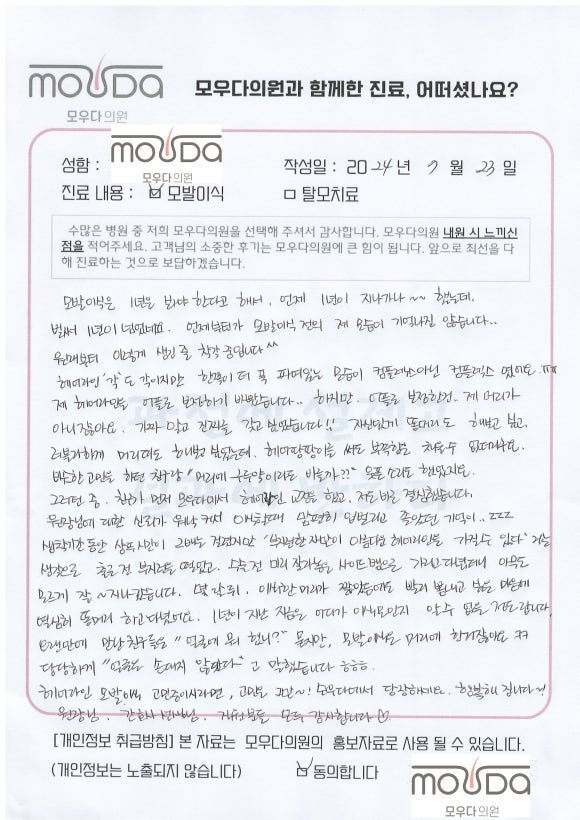 MOUDA
모우다의원
모우다의원과 함께한 진료, 어떠셨나요?
MOUDA
모우다의원
성함 : 작성일 : 2024년 9월 23일
진료 내용 : ☑ 모발이식 □ 탈모치료
수많은 병원 중 저희 모우다의원을 선택해 주셔서 감사합니다. 모우다의원 내원 시 느끼신
점을 적어주세요. 고객님의 소중한 후기는 모우다의원에 큰 힘이 됩니다. 앞으로 최선을 다
해 진료하는 것으로 보답하겠습니다.
모발이식은 1년은 봐야 한다고 해서, 언제 1년이 지나가나~~ 했는데,
벌써 1년이 넘었네요. 언제부터가 모발이식 전의 제 모습이 기억나질 않습니다..
원래부터 이렇게 생긴 줄 착각 중입니다^^
헤어라인 '각'도 각이지만 한쪽이 더 푹 파여있는 모습이 컴플렉스아닌 컴플렉스 였어요 ㅠㅠ
제 헤어라인을 어플로 보정하기 바빴습니다.. 하지만 어플로 보정한건.. 제 머리가
아니잖아요. 가짜 말고 진짜를 갖고 싶었습니다!! 자신있게 똘머리도 해보고 싶고,
해보고 싶었는데. 헤어팡팡이를 써도 부족함은 채울수 없더라구요.
하던 찰나 "머리에 구두약이라도 바를까??" 웃픈 소리도 했었지요.
그러던 중, 친구가 먼저 모우다에서 헤어라인 교정을 하고, 저도 바로 결심했습니다.
원장님에 대한 신뢰가 워낙 커서 이식할때 맘편히 입벌리고 졸았던 기억이..zzz
생착기간동안 샴푸시간이 2배는 걸렸지만 "부지런한 자만이 아름다운 헤어라인을 가질수 있다" 라는
생각으로
모르게 잘~지나갔습니다. 몇 달뒤, 이식한 머리가 짧았음에도 빨리 뽐내고 싶은 마음에
열심히 똘머리 하고다녔어요. 1년이 지난 지금은 어디가 이식모인지 알 수 없을 정도랍니다.
오랜만에 만난 친구들은 "얼굴에 뭐 했니?" 묻지만, 모발이식은 머리에 한거잖아요 ㅋㅋ
당당하게 "얼굴은 손대지 않았다"고 말했습니다 ㅎㅎㅎ
헤어라인 모발이식 고민중이시라면, 고민은 그만~! 모우다에서 당장하세요. 행복해 집니다~!
원장님, 간호사 선생님, 모두 감사합니다♡
[개인정보 취급방침] 본 자료는 모우다의원의 홍보자료로 사용 될 수 있습니다.
(개인정보는 노출되지 않습니다) ☑ 동의합니다
MOUDA
모우다의원